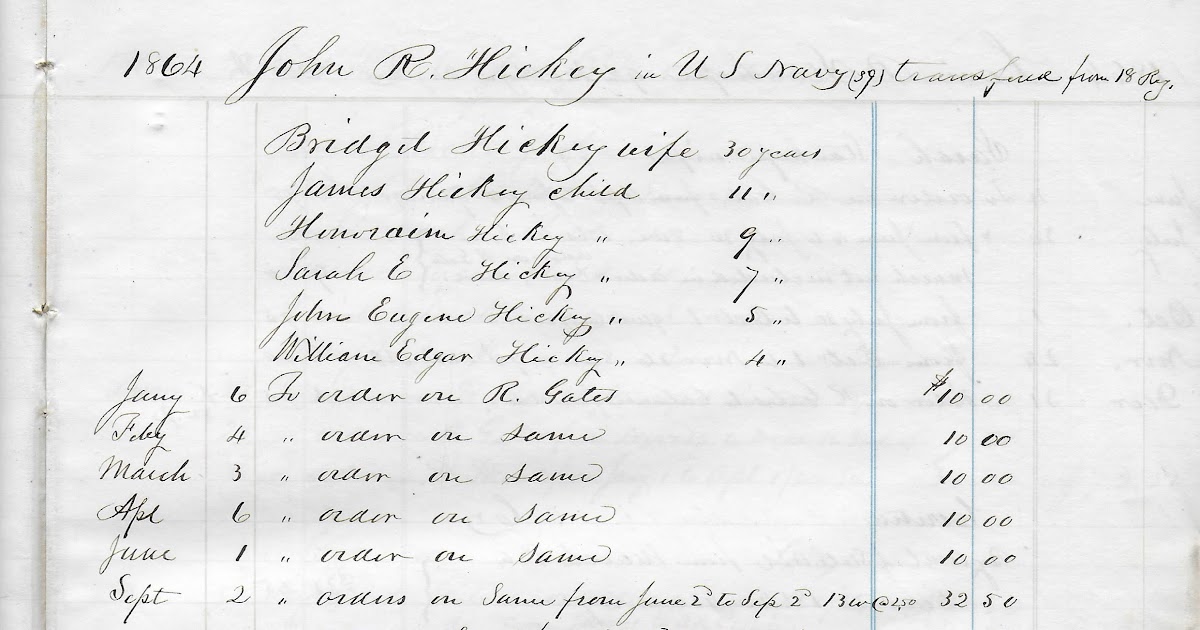 1864 John R. Hickey in U S Navy (59) transfired from 18 Reg.
Bridget Hickey wife 30 years
James Hickey child 11 "
Honoraim Hickey " 9 "
Sarah E Hickey " 7 "
John Eugene Hickey " 5 "
William Edgar Hickey " 4 "
Jany 6 To order on R. Gates $10 00
Feby 4 " order on same 10 00
March 3 " order on same 10 00
Apl 6 " order on same 10 00
June 1 " order on same 10 00
Sept 2 " orders on Same from June 2d to Sep 2d 13 w @ 2.50 32 50